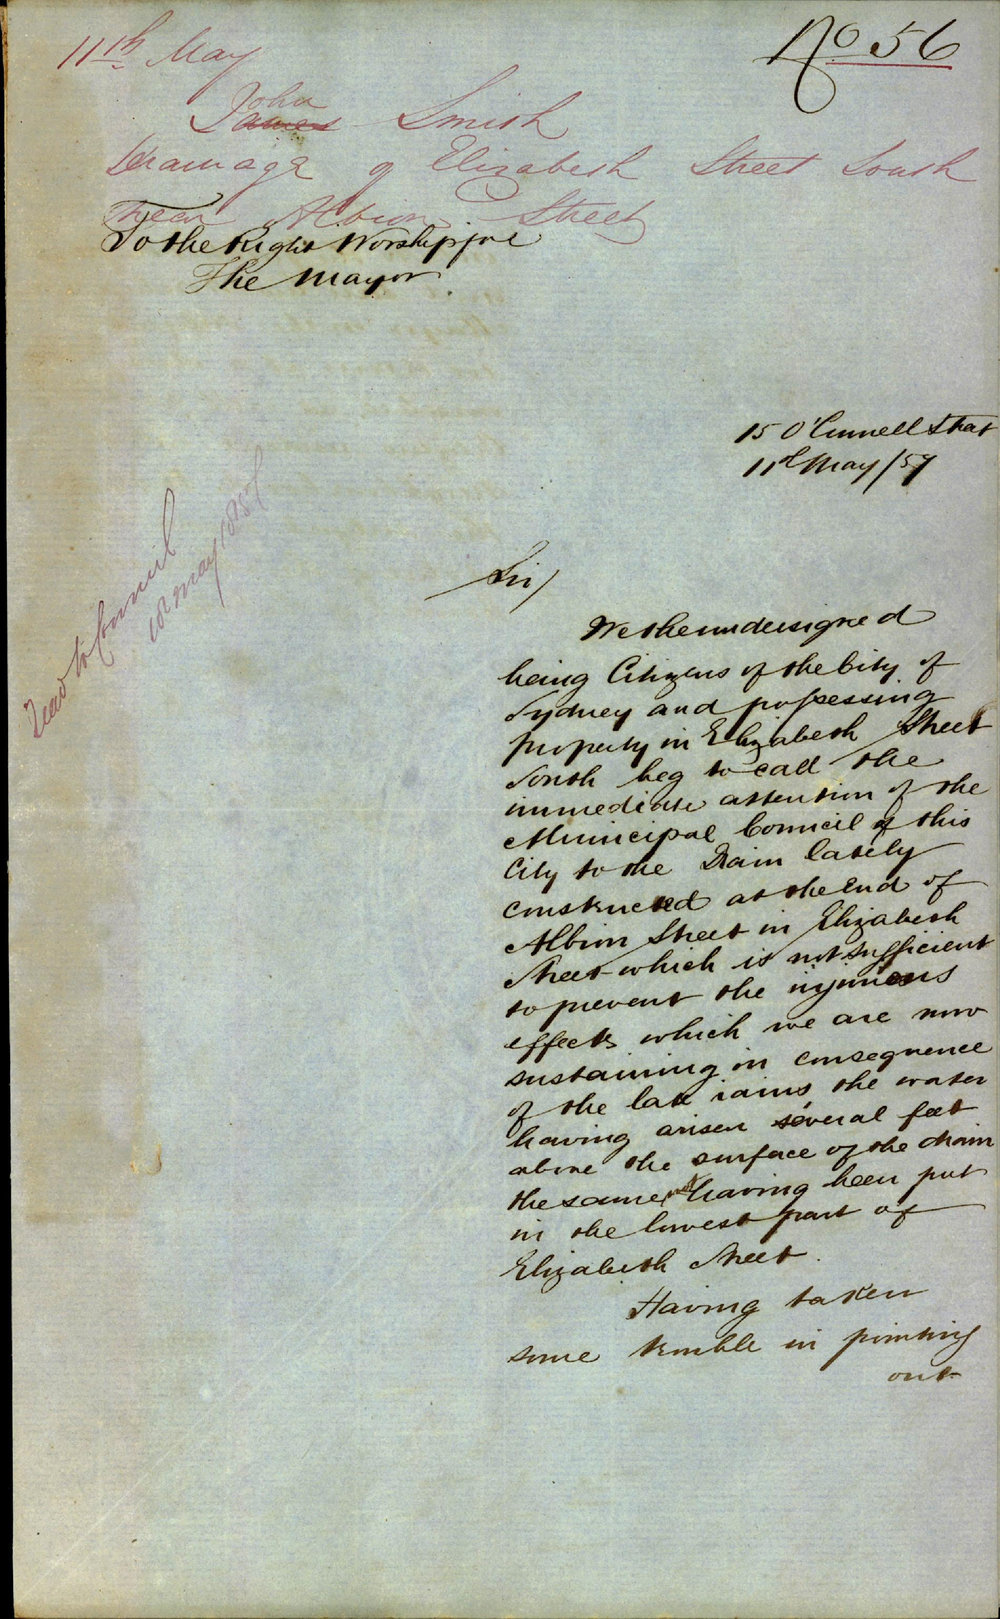 11th May
No 56
John
James Smith
Drainage of Elizabeth Street South
near Albion Street
To the Right Worshipful
The Mayor
15 O'Connell Street
11th May /57
Sir/
Read to Council
May 1857
We the undersigned
being Citizens of the City of
Sydney and possessing
property in Elizabeth Street
South beg to call the
immediate attention of the
Municipal Council of this
City to the Drain lately
constructed at the End of
Albion Street in Elizabeth
Street which is not sufficient
to prevent the injurious
effects which we are now
sustaining in consequence
of the late rains the water
having arisen several feet
above the surface of the drain
the same not having been put
in the lowest part of
Elizabeth Street.
Having taken
some trouble in pointing
out